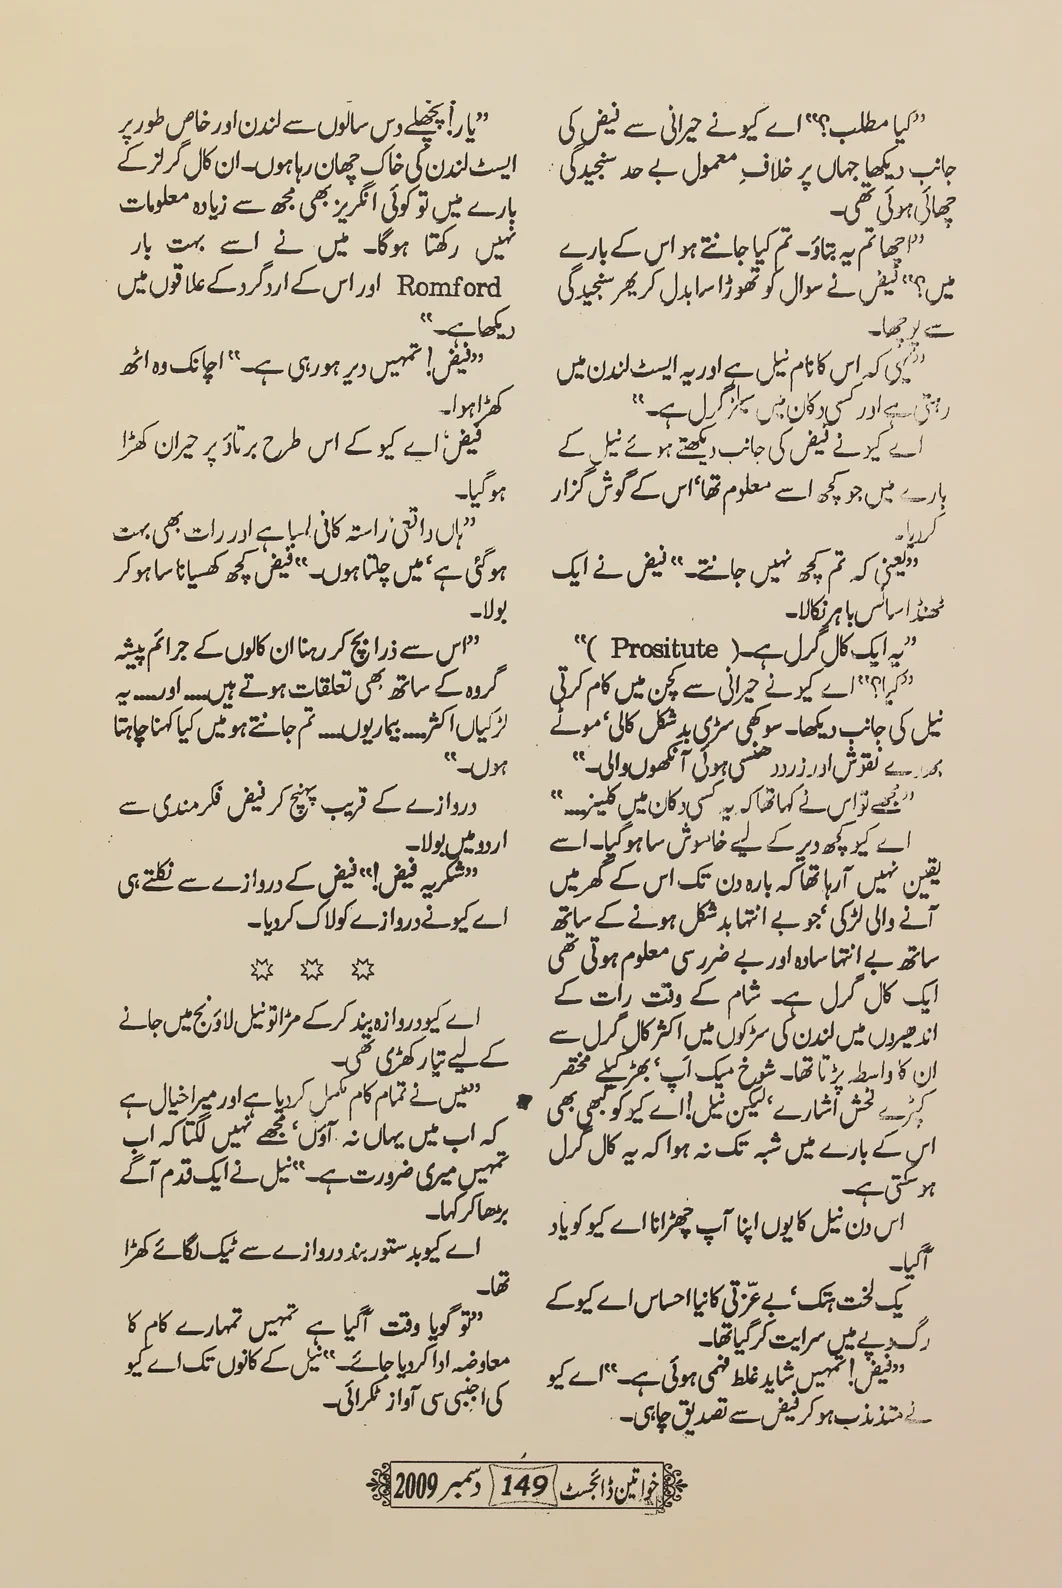 ”کیا مطلب؟“ اے کیو نے حیرانی سے فیض کی
جانب دیکھا جہاں پر خلافِ معمول بے حد سنجیدگی
چھائی ہوئی تھی۔
”اچھا تم یہ بتاؤ۔ تم کیا جانتے ہو اس کے بارے
میں؟“ فیض نے سوال کو تھوڑا سا بدل کر پھر سنجیدگی
سے پوچھا۔
”یہی کہ اس کا نام نیل ہے اور یہ ایسٹ لندن میں
رہتی ہے اور کسی دکان میں سیلز گرل ہے۔“
اے کیو نے فیض کی جانب دیکھتے ہوئے نیل کے
بارے میں جو کچھ اسے معلوم تھا‘ اس کے گوش گزار
کر دیا۔
”یعنی کہ تم کچھ نہیں جانتے۔“ فیض نے ایک
ٹھنڈا سانس باہر نکالا۔
”یہ ایک کال گرل ہے۔ ( Prositute )“
”کیا؟“ اے کیو نے حیرانی سے کچن میں کام کرتی
نیل کی جانب دیکھا۔ سوکھی سڑی بد شکل کالی‘ موٹے
بھدے نقوش اور زرد دھنسی ہوئی آنکھوں والی۔“
”مجھے تو اس نے کہا تھا کہ یہ کسی دکان میں کلینر....“
اے کیو کچھ دیر کے لیے خاموش سا ہو گیا۔ اسے
یقین نہیں آ رہا تھا کہ بارہ دن تک اس کے گھر میں
آنے والی لڑکی‘ جو بے انتہا بد شکل ہونے کے ساتھ
ساتھ بے انتہا سادہ اور بے ضرر سی معلوم ہوتی تھی
ایک کال گرل ہے۔ شام کے وقت رات کے
اندھیروں میں لندن کی سڑکوں میں اکثر کال گرل سے
ان کا واسطہ پڑتا تھا۔ شوخ میک اپ‘ بھڑکیلے مختصر
کپڑے فحش اشارے‘ لیکن نیل! اے کیو کو کبھی بھی
اس کے بارے میں شبہ تک نہ ہوا کہ یہ کال گرل
ہو سکتی ہے۔
اس دن نیل کا یوں اپنا آپ چھڑانا اے کیو کو یاد
آ گیا۔
یک لخت ہتک‘ بے عزّتی کا نیا احساس اے کیو کے
رگ و پے میں سرایت کر گیا تھا۔
”فیض! تمہیں شاید غلط فہمی ہوئی ہے۔“ اے کیو
نے متذبذب ہو کر فیض سے تصدیق چاہی۔
”یار! پچھلے دس سالوں سے لندن اور خاص طور پر
ایسٹ لندن کی خاک چھان رہا ہوں۔ ان کال گرلز کے
بارے میں تو کوئی انگریز بھی مجھ سے زیادہ معلومات
نہیں رکھتا ہوگا۔ میں نے اسے بہت بار
Romford اور اس کے ارد گرد کے علاقوں میں
دیکھا ہے۔“
”فیض! تمہیں دیر ہو رہی ہے۔“ اچانک وہ اٹھ
کھڑا ہوا۔
فیض‘ اے کیو کے اس طرح برتاؤ پر حیران کھڑا
ہو گیا۔
”ہاں واقعی راستہ کافی لمبا ہے اور رات بھی بہت
ہو گئی ہے‘ میں چلتا ہوں۔“ فیض کچھ کھسیانا سا ہو کر
بولا۔
”اس سے ذرا بچ کر رہنا ان کالوں کے جرائم پیشہ
گروہ کے ساتھ بھی تعلقات ہوتے ہیں.... اور.... یہ
لڑکیاں اکثر.... بیماریوں.... تم جانتے ہو میں کیا کہنا چاہتا
ہوں۔“
دروازے کے قریب پہنچ کر فیض فکر مندی سے
اردو میں بولا۔
”شکریہ فیض!“ فیض کے دروازے سے نکلتے ہی
اے کیو نے دروازے کو لاک کر دیا۔
اے کیو دروازہ بند کر کے مڑا تو نیل لاؤنج میں جانے
کے لیے تیار کھڑی تھی۔
”میں نے تمام کام مکمل کر دیا ہے اور میرا خیال ہے
کہ اب میں یہاں نہ آؤں‘ مجھے نہیں لگتا کہ اب
تمہیں میری ضرورت ہے۔“ نیل نے ایک قدم آگے
بڑھا کر کہا۔
اے کیو بدستور بند دروازے سے ٹیک لگائے کھڑا
تھا۔
”تو گویا وقت آ گیا ہے تمہیں تمہارے کام کا
معاوضہ ادا کر دیا جائے۔“ نیل کے کانوں تک اے کیو
کی اجنبی سی آواز ٹکرائی۔
خواتین ڈائجسٹ 149 دسمبر 2009